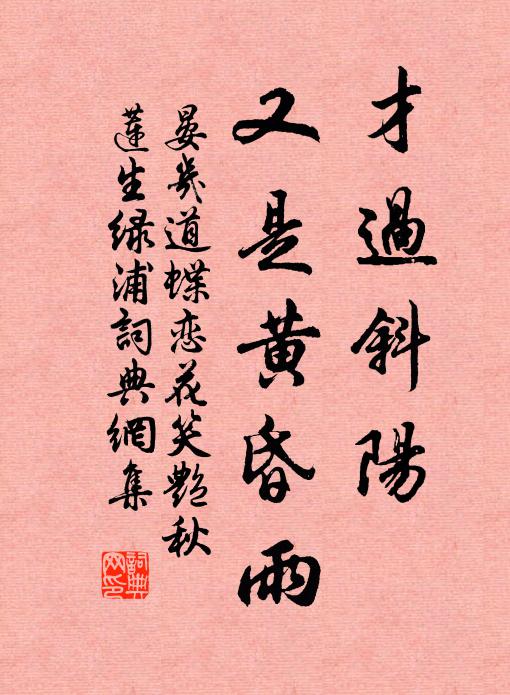 才過斜陽
又是黃昏雨
晏幾道蝶恋花笑艷秋
蓮生绿浦詞典網集
詞典网印